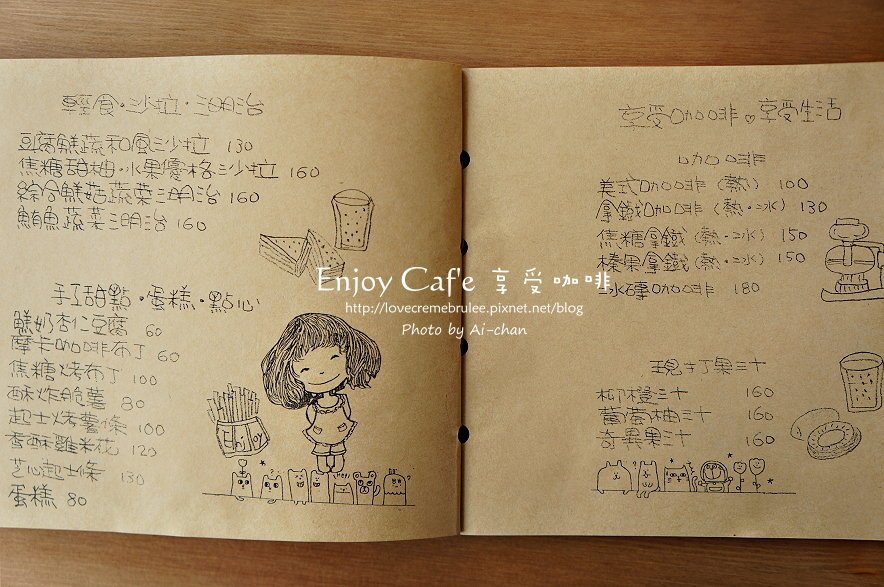 輕食・沙拉・三明治
豆腐鮮蔬和風沙拉 130
焦糖甜柚・水果優格沙拉 160
綜合鮮菇蔬菜三明治 160
鮪魚蔬菜三明治 160
手工甜點・蛋糕・點心
鮮奶杏仁豆腐 60
摩卡咖啡布丁 60
焦糖烤布丁 100
酥炸脆薯 80
起士烤薯條 100
香酥雞米花 120
芝心起士條 130
蛋糕 80
Enjoy
Hey!
享受咖啡♥享受生活
咖啡
美式咖啡(熱) 100
拿鐵咖啡(熱・冰) 130
焦糖拿鐵(熱・冰) 150
榛果拿鐵(熱・冰) 150
冰磚咖啡 180
現打果汁
柳橙汁 160
葡萄柚汁 160
奇異果汁 160
Enjoy Caf'e 享受咖啡
http://lovecremebrulee.pixnet.net/blog
Photo by Ai-chan